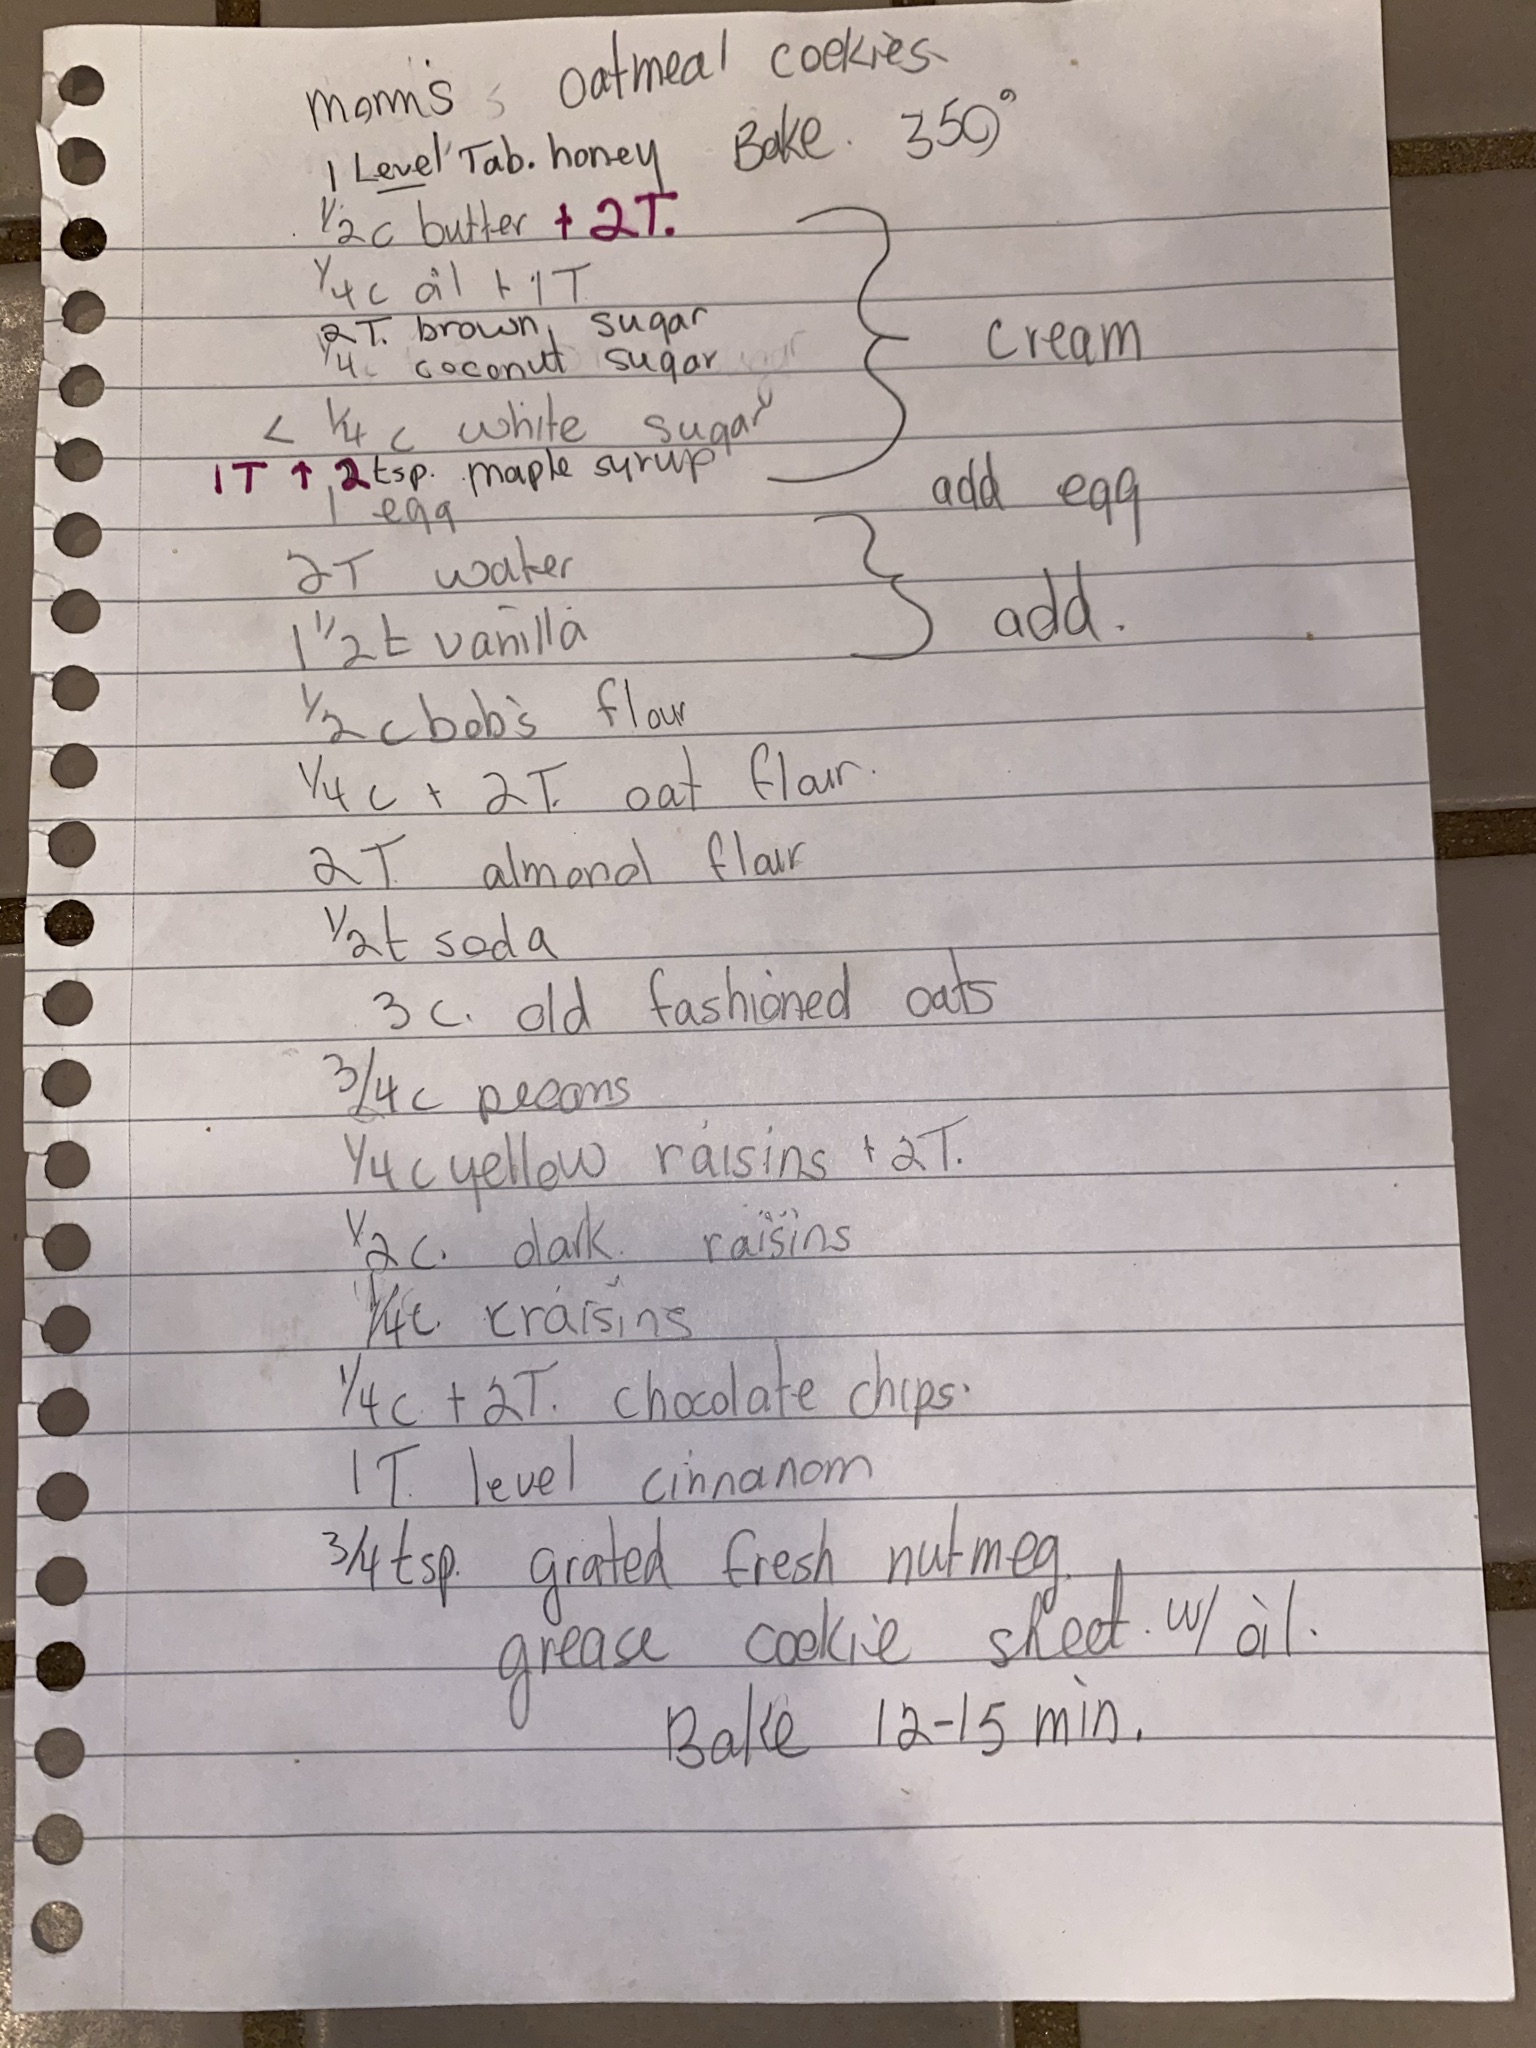 mom's oatmeal cookies
1 Level Tab. honey Bake. 350°
1/2c butter + 2T.
1/4c oil + 1T
2T. brown sugar
1/4 coconut sugar
cream
< 1/4 c white sugar
1T + 2tsp. maple syrup
1 egg
add egg
2T water
1 1/2t vanilla
add.
1/2c bob's flour
1/4c + 2T. oat flour.
2T. almond flour
1/2t soda
3c. old fashioned oats
3/4c pecans
1/4c yellow raisins + 2T.
1/2c. dark raisins
1/4c. craisins
1/4c + 2T. chocolate chips.
1T. level cinnanom
3/4tsp. grated fresh nutmeg.
grease cookie sheet. w/ oil.
Bake 12-15 min.